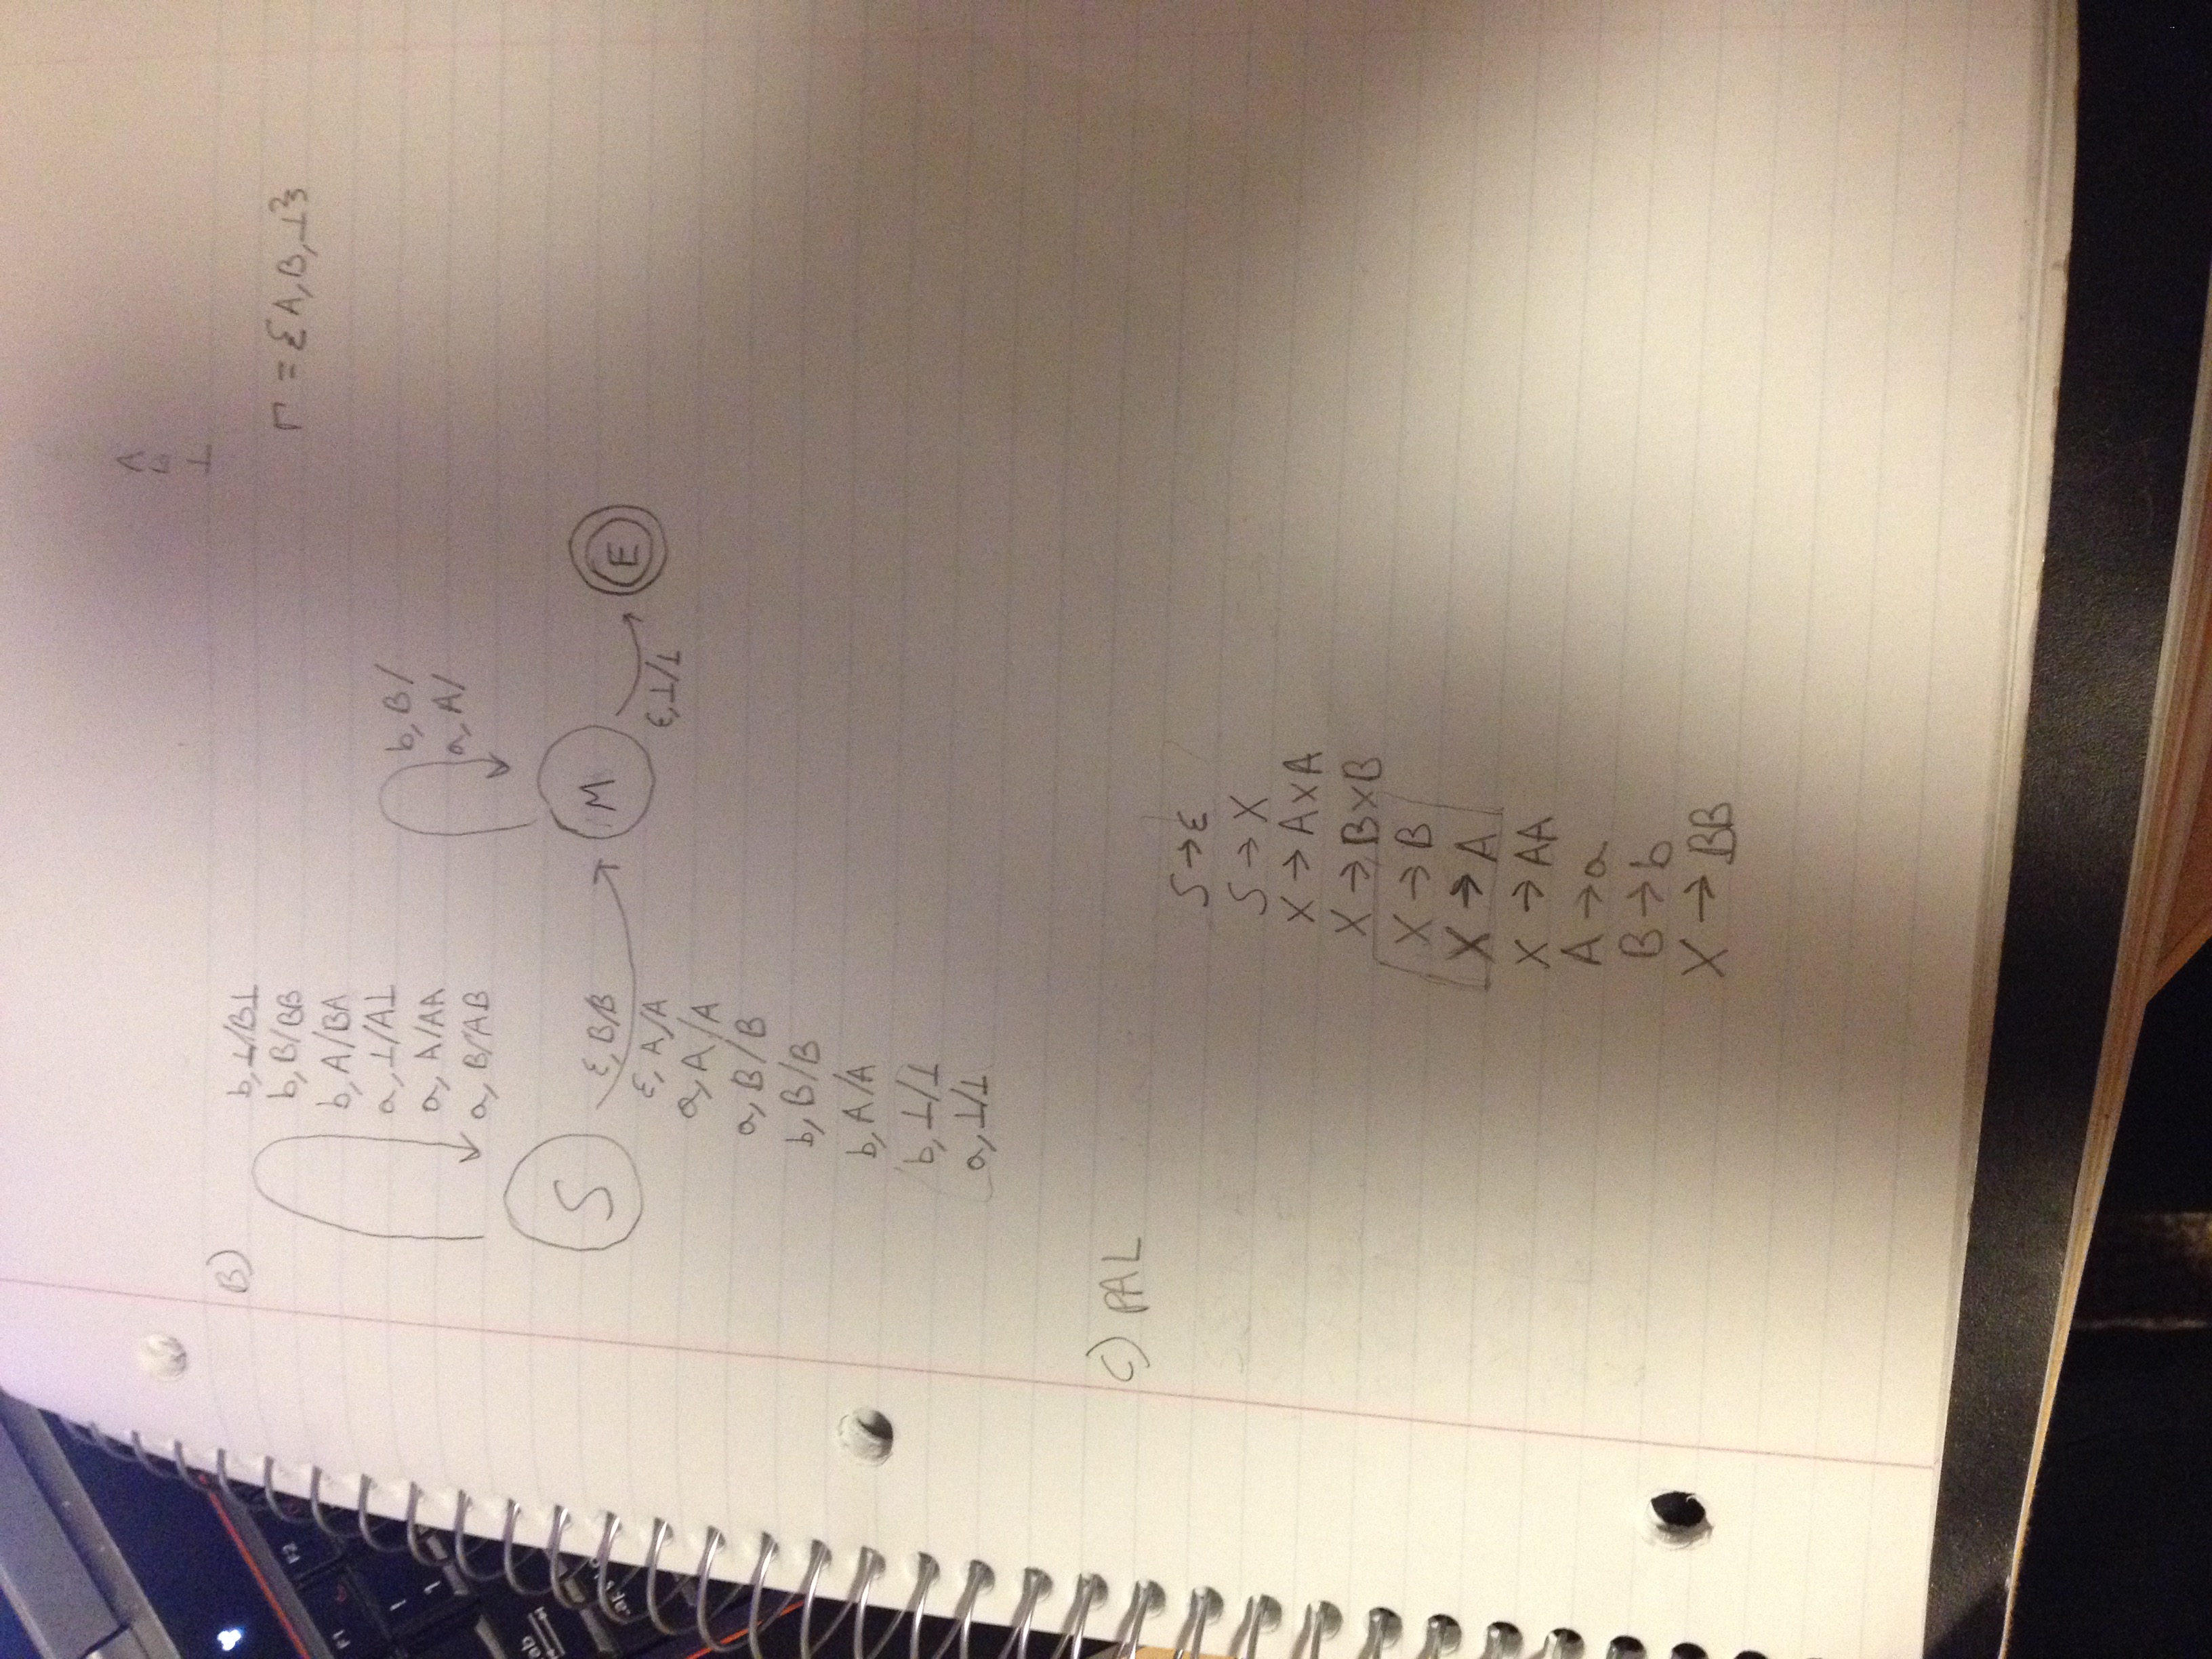 A
B
⊥
B)
Γ = {A, B, ⊥}
b, ⊥/B⊥
b, B/BB
b, A/BA
a, ⊥/A⊥
a, A/AA
a, B/AB
b, B/
a, A/
S
M
E
ε, B/B
ε, A/A
ε, ⊥/⊥
a, A/A
a, B/B
b, B/B
b, A/A
b, ⊥/⊥
a, ⊥/⊥
C) PAL
S → ε
S → X
X → AXA
X → BXB
X → B
X → A
X → AA
A → a
B → b
X → BB
F1
F2
1
1